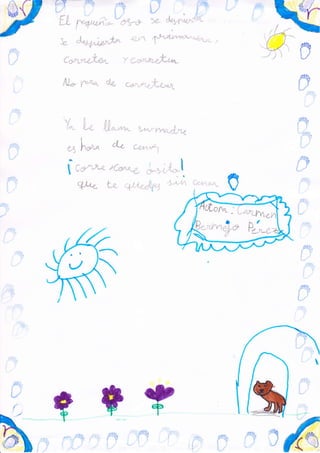 El pequeño oso se despierta
se despierta en primavera,
Corretea y corretea
No para de corretear
Ya le llama su madre
es hora de cenar
¡Corre corre osito!
que te quedas sin cenar
Autora: Carmen
Bermejo Pérez